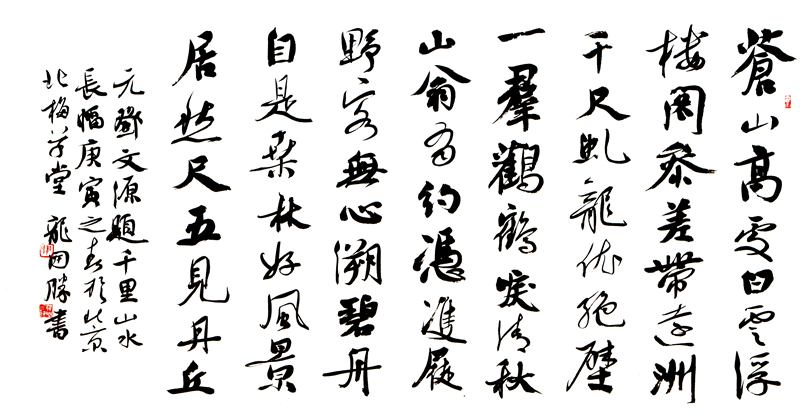 蒼山高處白雲浮
楼閣參差帶遠洲
千尺虬龍依絕壁
一羣鸛鶴唳清秋
山翁有約憑雙屐
野客無心溯碧舟
自是桑林好風景
居然尺五見丹丘
元鄧文源題千里山水
長幅庚寅之春於北京
北梅草堂 龍勝書